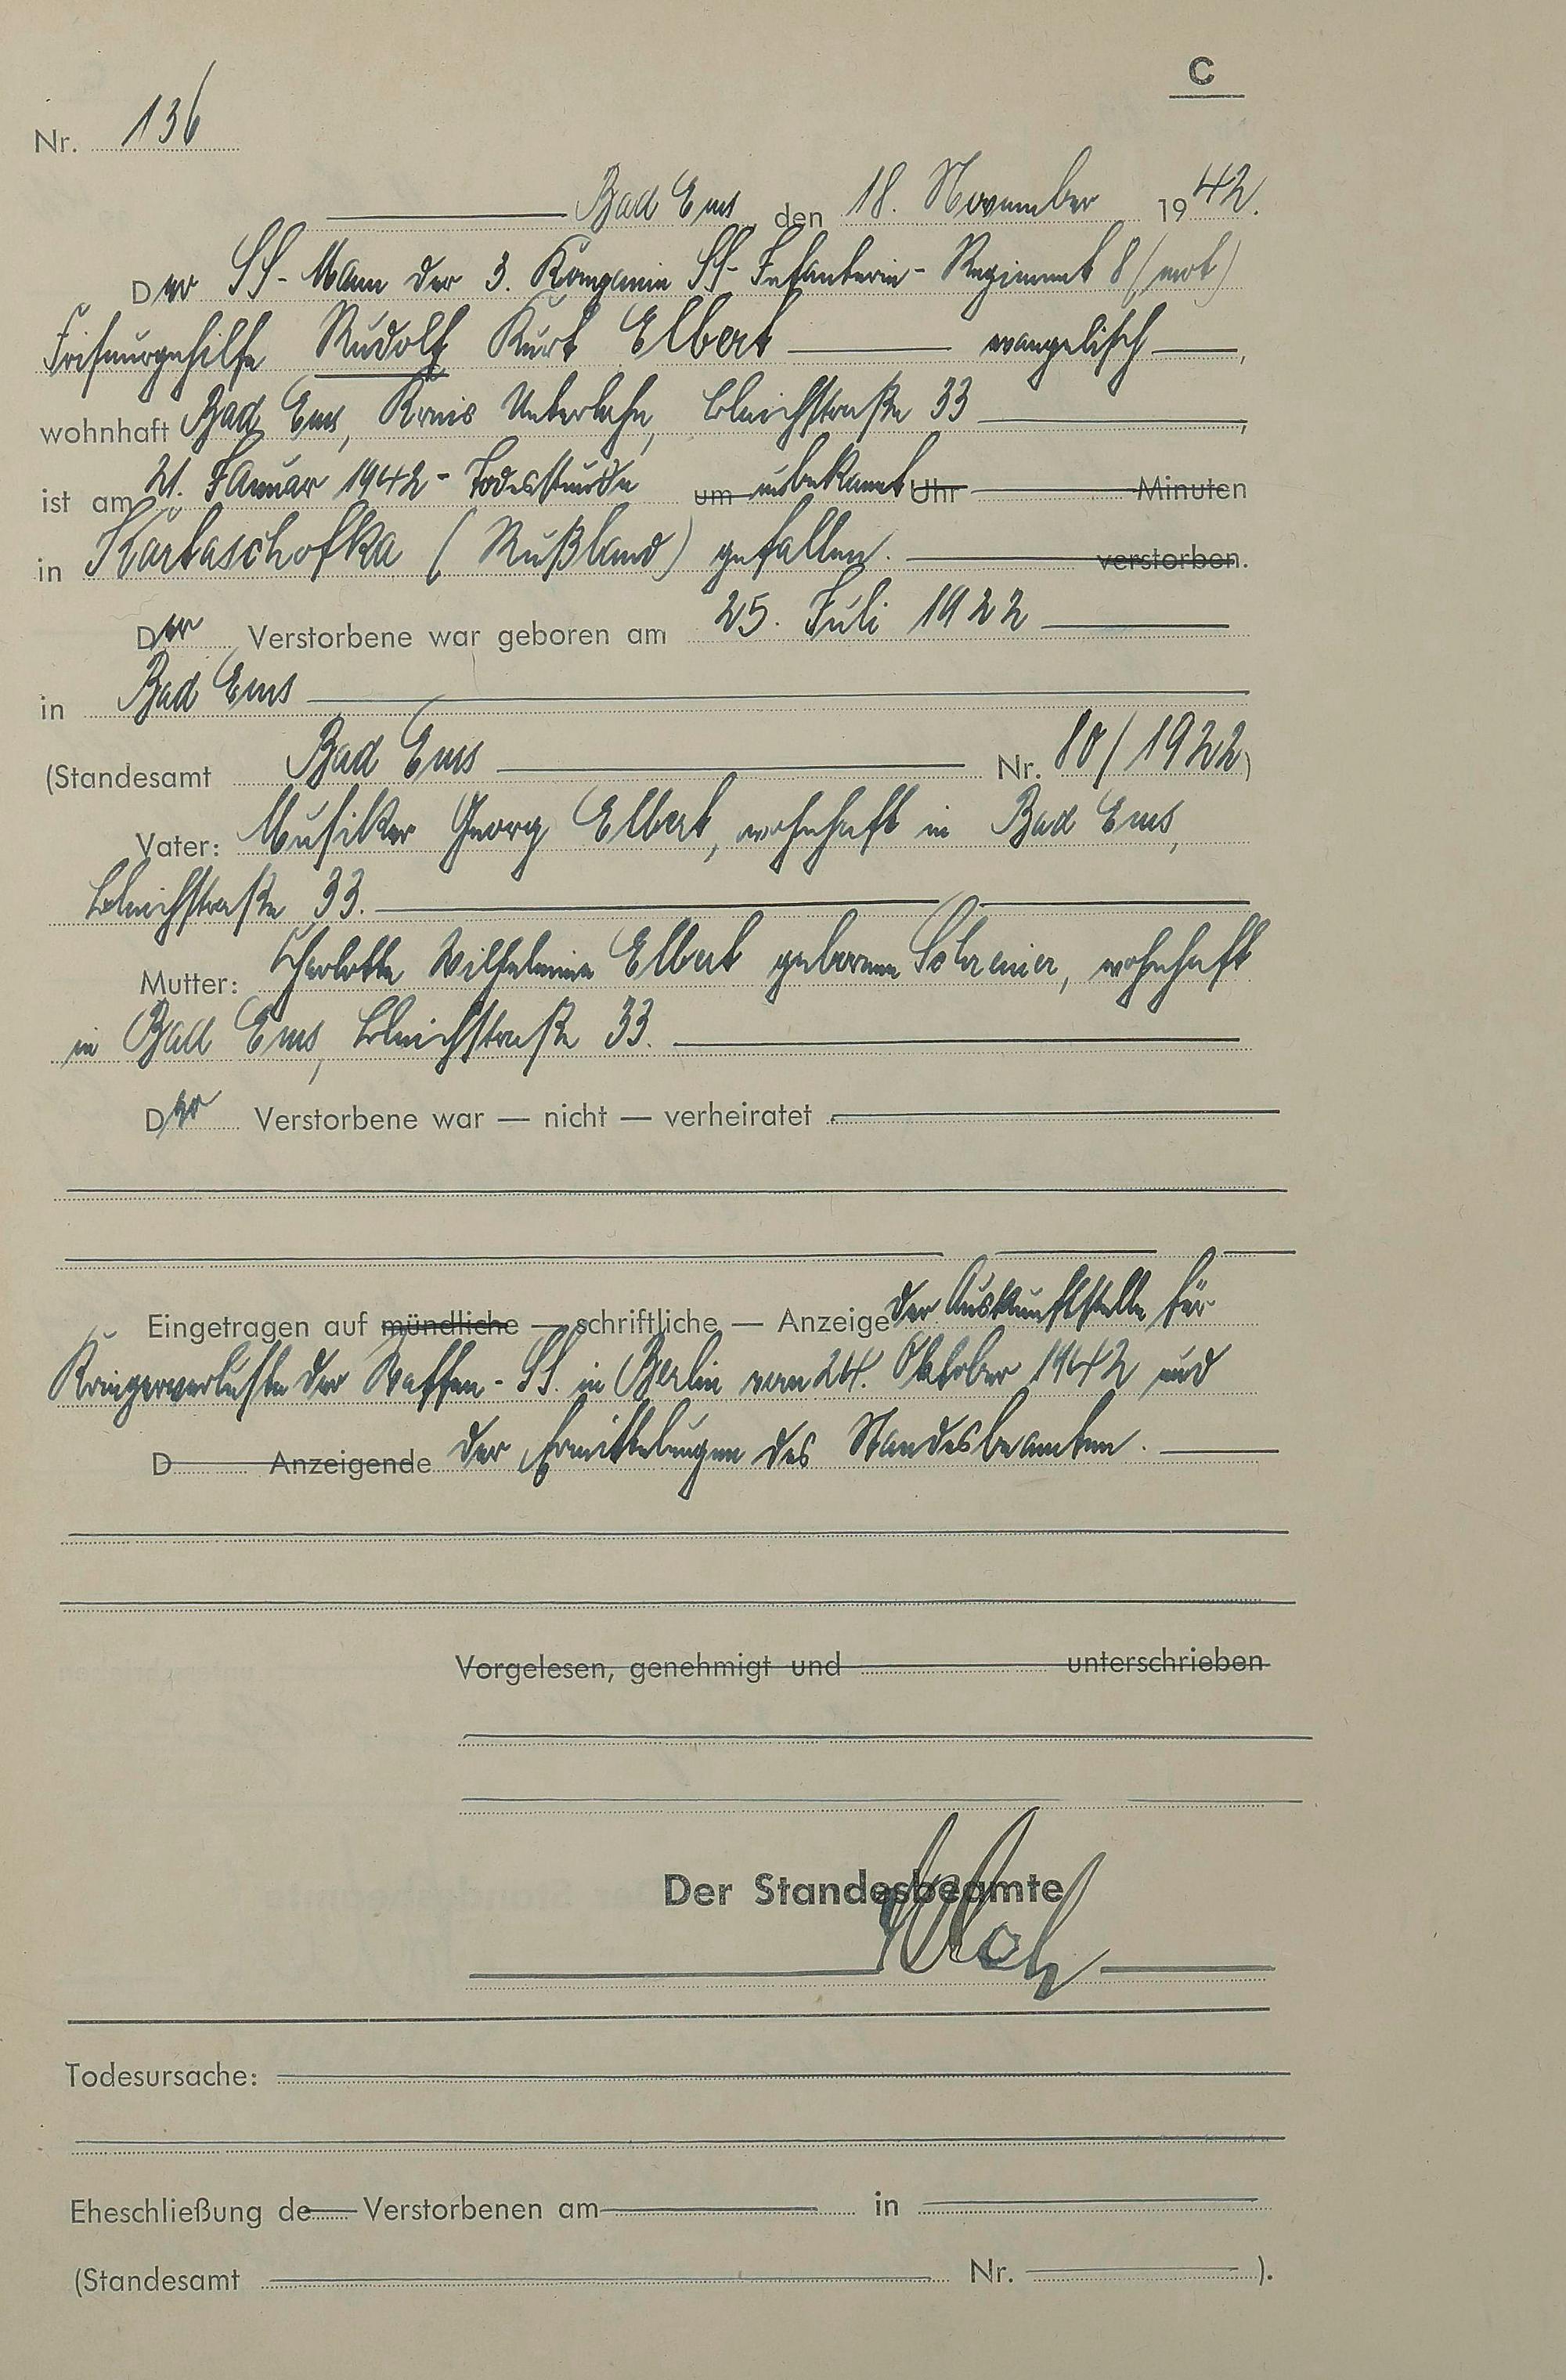 C
Nr. 136
Bad Ems den 18. November 1942.
Der SS-Mann der 3. Kompanie SS-Infanterie-Regiment 8 (mot)
Friseurgehilfe Rudolf Kurt Elbert evangelisch,
wohnhaft Bad Ems, Kreis Unterlahn, Bleichstraße 33,
ist am 21. Januar 1942 - Todesstunde um unbekannt Uhr Minuten
in Kartaschofka (Rußland) gefallen. verstorben.
Der Verstorbene war geboren am 25. Juli 1922
in Bad Ems
(Standesamt Bad Ems Nr. 80/1922)
Vater: Musiker Georg Elbert, wohnhaft in Bad Ems,
Bleichstraße 33.
Mutter: Charlotte Wilhelmine Elbert geborene Schreiner, wohnhaft
in Bad Ems, Bleichstraße 33.
Der Verstorbene war — nicht — verheiratet
Eingetragen auf mündliche — schriftliche — Anzeige der Auskunftstelle für
Kriegerverluste der Waffen-SS. in Berlin vom 24. Oktober 1942 und
D Anzeigende der Ermittelungen des Standesbeamten.
Vorgelesen, genehmigt und unterschrieben
Der Standesbeamte
Todesursache:
Eheschließung de Verstorbenen am in
(Standesamt Nr. ).